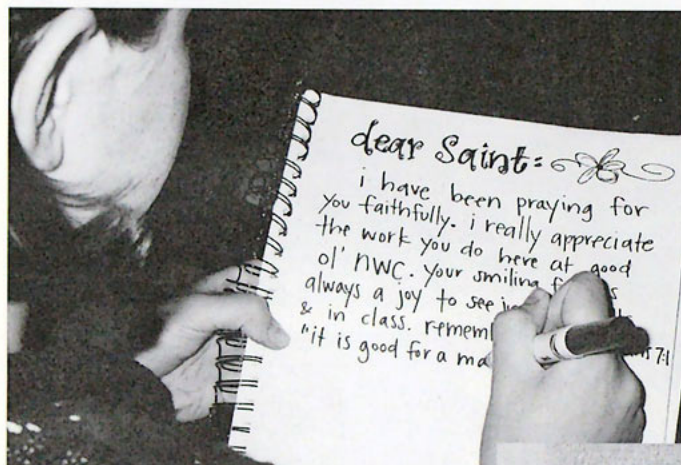 dear Saint:
i have been praying for
you faithfully. i really appreciate
the work you do here at good
ol' nwc. your smiling
always a joy to see
& in class.
"it is good for a
7:1